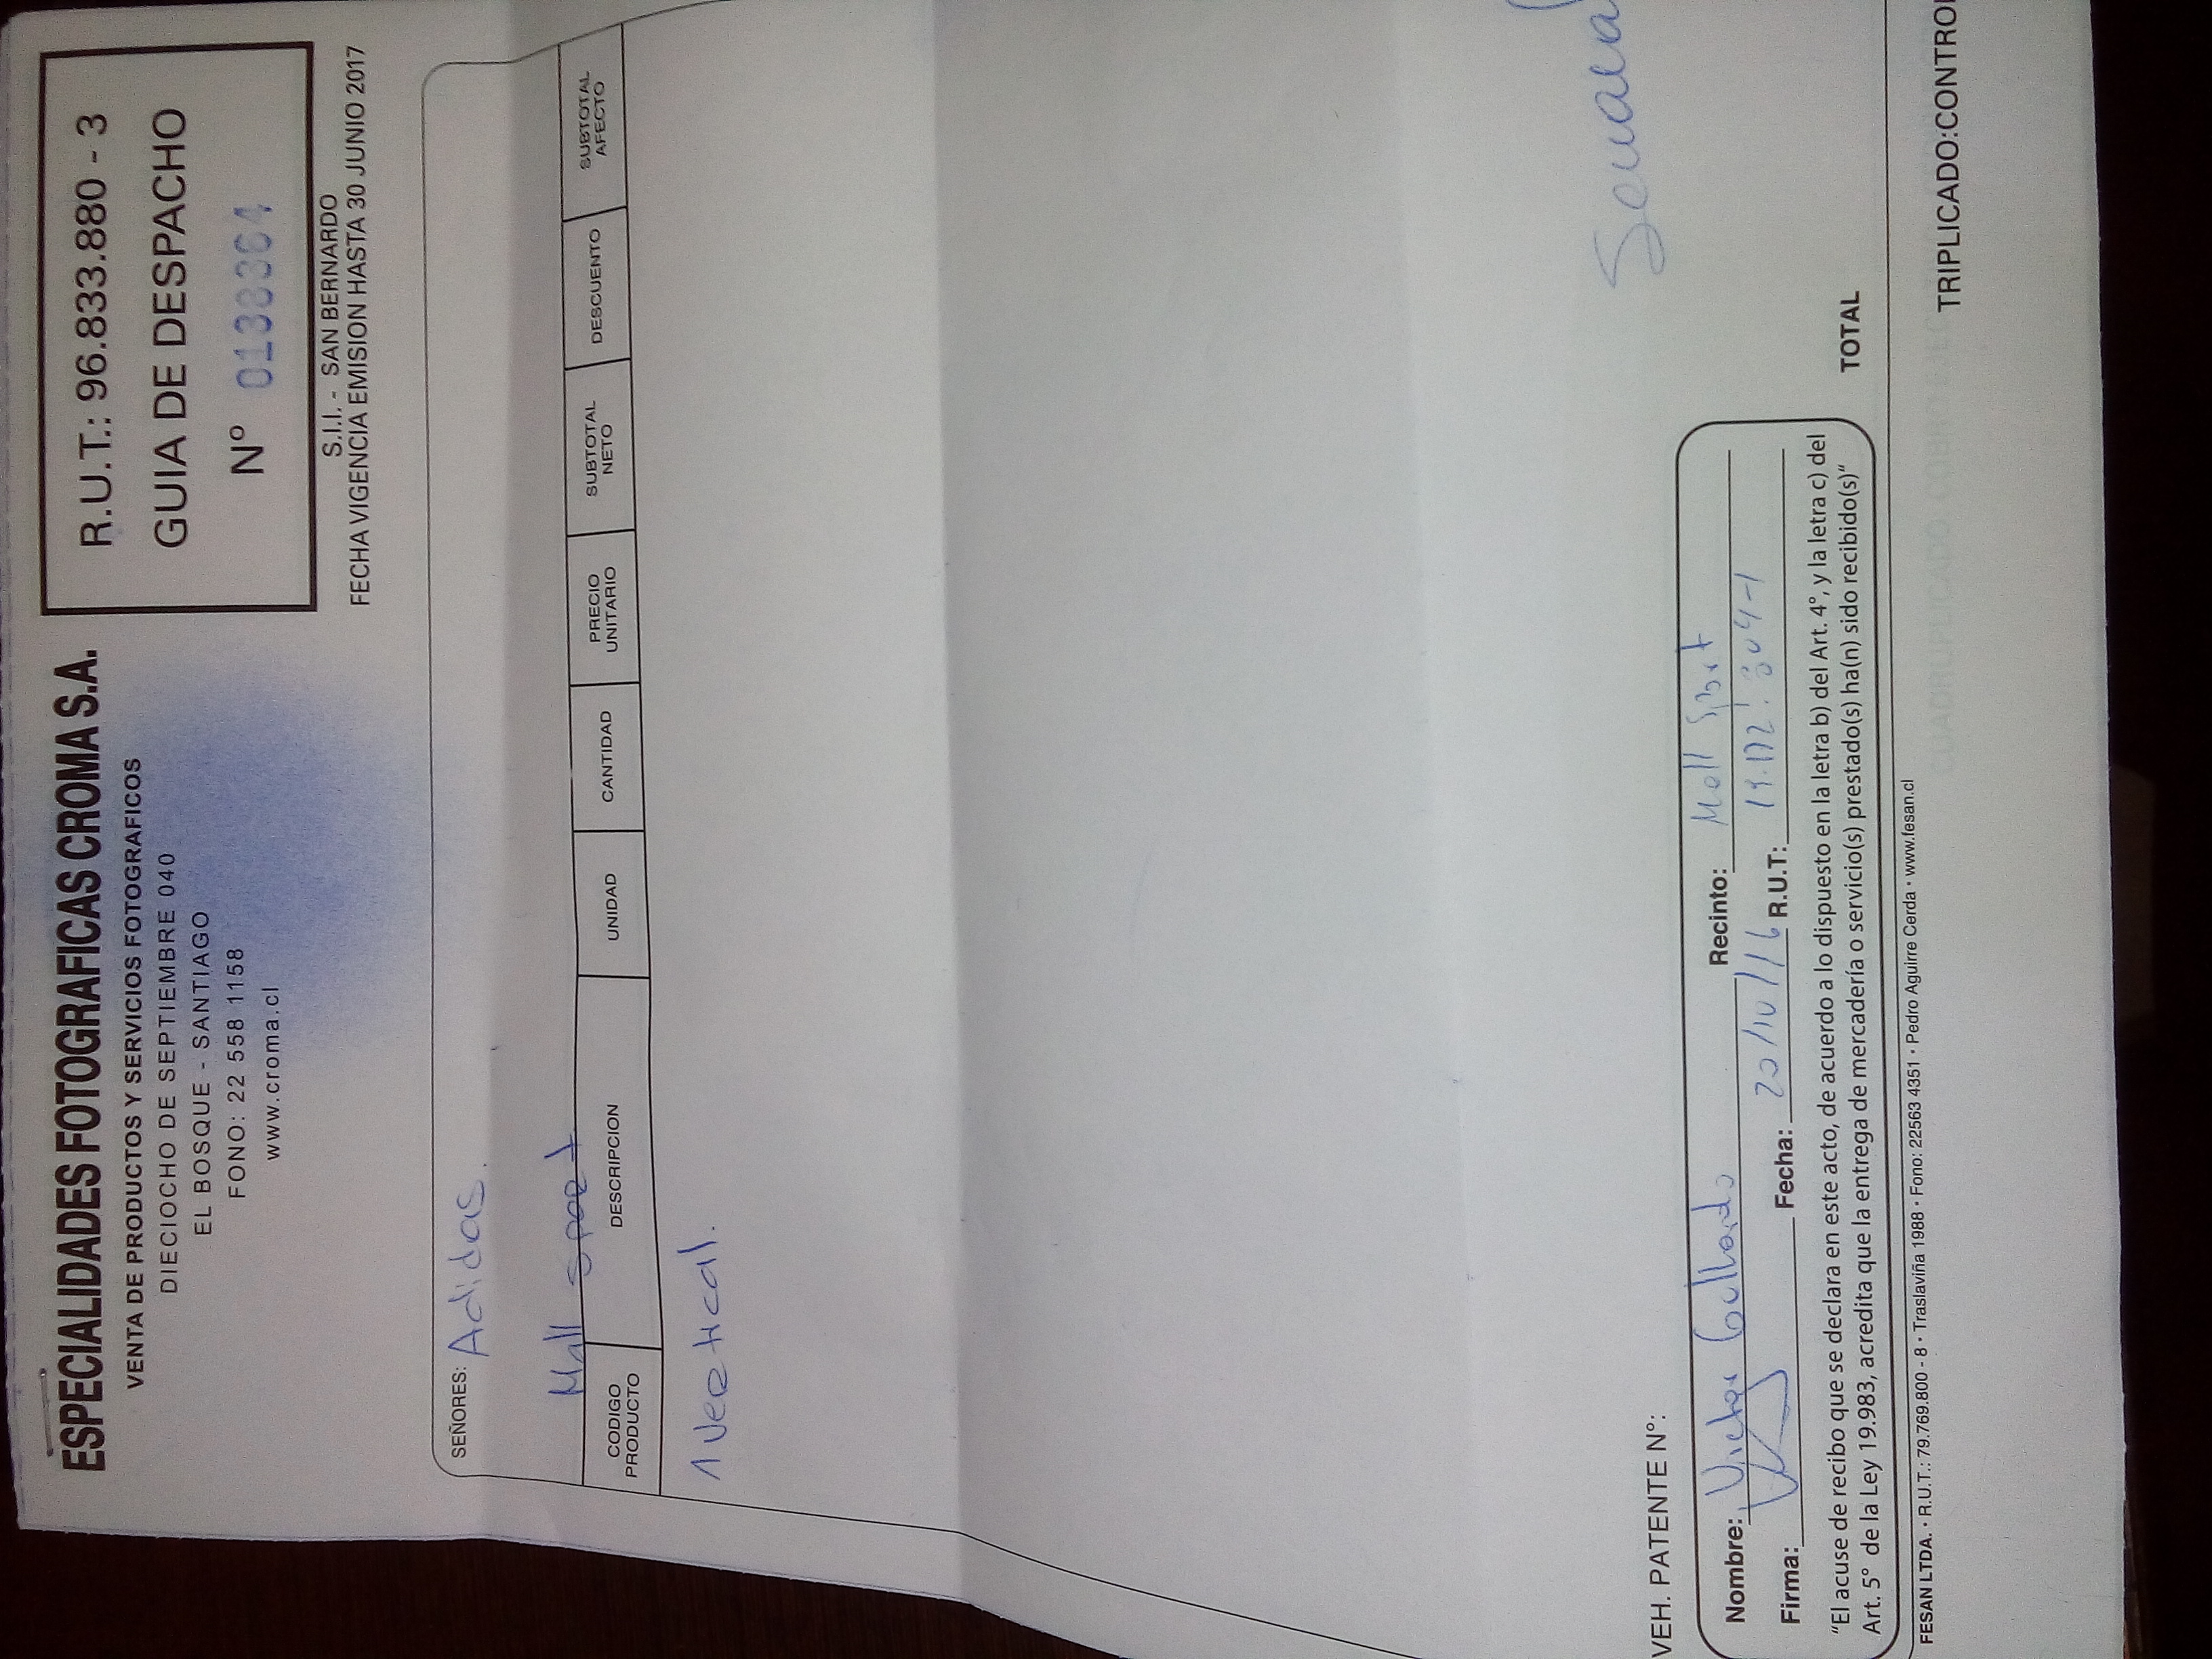 ESPECIALIDADES FOTOGRAFICAS CROMA S.A.
VENTA DE PRODUCTOS Y SERVICIOS FOTOGRAFICOS
DIECIOCHO DE SEPTIEMBRE 040
EL BOSQUE - SANTIAGO
FONO: 22 558 1158
www.croma.cl
R.U.T.: 96.833.880 - 3
GUIA DE DESPACHO
Nº 0138364
S.I.I. - SAN BERNARDO
FECHA VIGENCIA EMISION HASTA 30 JUNIO 2017
SEÑORES: Adidas.
Mall sport
CODIGO PRODUCTO DESCRIPCION UNIDAD CANTIDAD PRECIO UNITARIO SUBTOTAL NETO DESCUENTO SUBTOTAL AFECTO
1 Vertical.
VEH. PATENTE N°:
Nombre: Victor Gallardo Recinto: Mall Sport
Firma: Fecha: 20/10/16 R.U.T:
"El acuse de recibo que se declara en este acto, de acuerdo a lo dispuesto en la letra b) del Art. 4°, y la letra c) del
Art. 5° de la Ley 19.983, acredita que la entrega de mercadería o servicio(s) prestado(s) ha(n) sido recibido(s)"
TOTAL
FESAN LTDA. · R.U.T.: 79.769.800 - 8 · Traslaviña 1988 · Fono: 22563 4351 · Pedro Aguirre Cerda · www.fesan.cl
TRIPLICADO:CONTROL